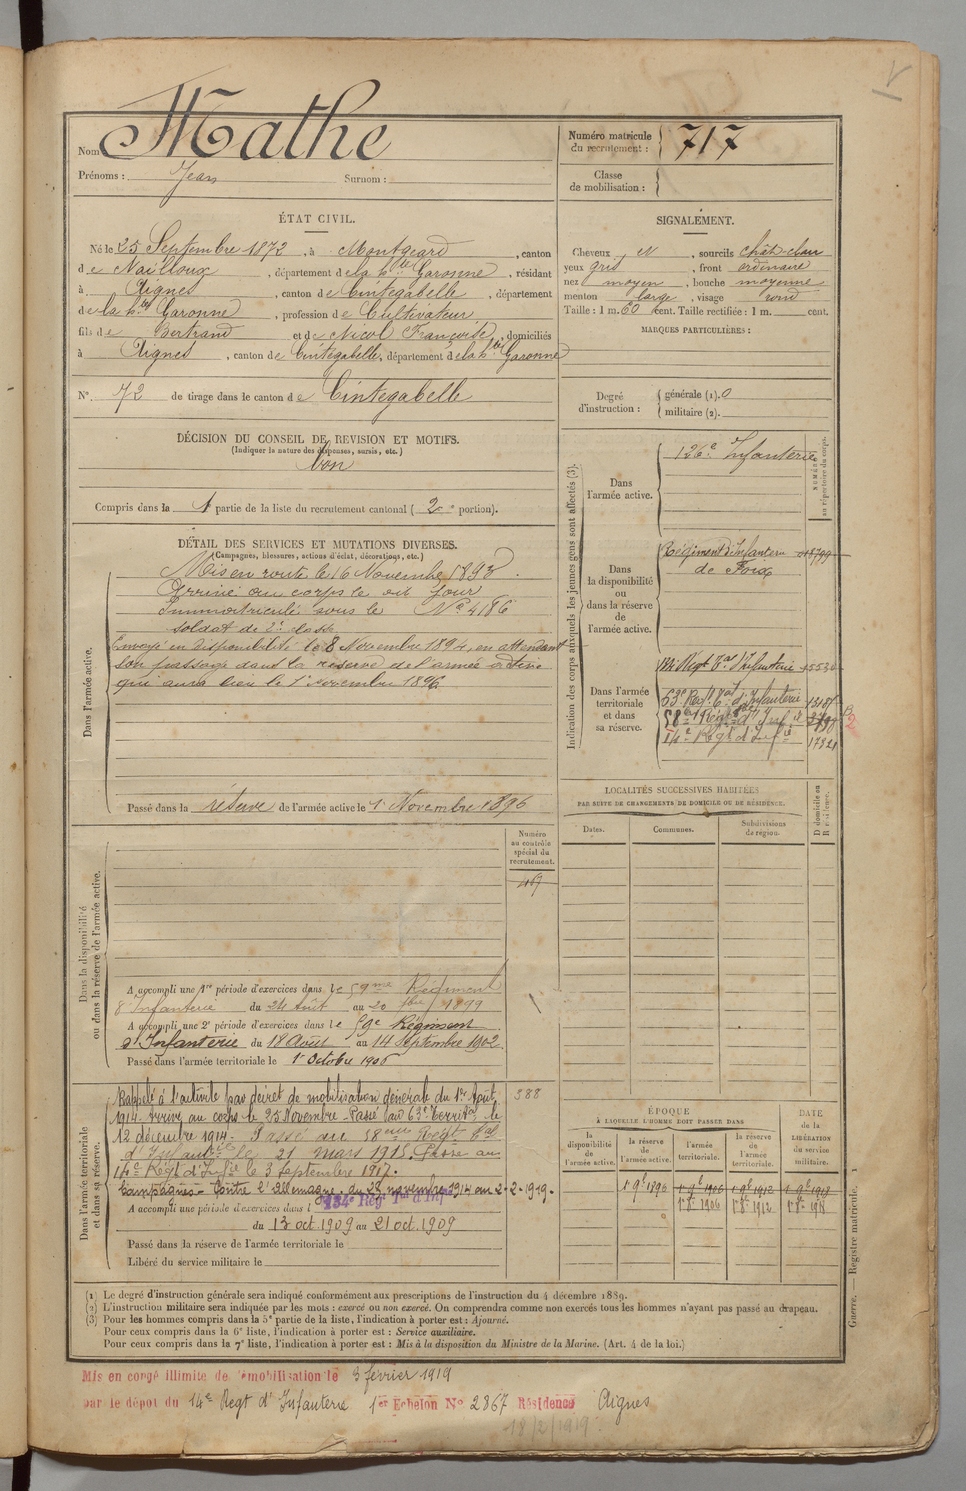 Nom Mathe
Prénoms : Jean Surnom :
Numéro matricule du recrutement : 717
Classe de mobilisation :
ÉTAT CIVIL.
Né le 25 Septembre 1872, à Montgeard, canton
de Nailloux, département de la hte Garonne, résidant
à Aignes, canton de Cintegabelle, département
de la hte Garonne, profession de Cultivateur
fils de Bertrand et de Nicol Françoise, domiciliés
à Aignes, canton de Cintegabelle, département de la hte Garonne
N°. 72 de tirage dans le canton de Cintegabelle
SIGNALEMENT.
Cheveux N, sourcils chât-clair
yeux gris, front ordinaire
nez moyen, bouche moyenne
menton large, visage rond
Taille : 1 m. 60 cent. Taille rectifiée : 1 m. cent.
MARQUES PARTICULIÈRES :
Degré d'instruction : générale (1). 0
militaire (2).
DÉCISION DU CONSEIL DE REVISION ET MOTIFS.
(Indiquer la nature des dispenses, sursis, etc.)
bon
Compris dans la 1 partie de la liste du recrutement cantonal (2e portion).
DÉTAIL DES SERVICES ET MUTATIONS DIVERSES.
(Campagnes, blessures, actions d'éclat, décorations, etc.)
Dans l'armée active.
Mis en route le 16 Novembre 1893.
Arrivé au corps le dit jour
Immatriculé sous le No 4186
soldat de 2e classe
Envoyé en disponibilité le 8 Novembre 1894, en attendant
son passage dans la réserve de l'armée active
qui aura lieu le 1er Novembre 1896.
Passé dans la réserve de l'armée active le 1er Novembre 1896
Indication des corps auxquels les jeunes gens sont affectés (3).
NUMÉRO au répertoire du corps.
Dans l'armée active.
126e Infanterie
Dans la disponibilité ou dans la réserve de l'armée active.
Régiment d'Infanterie
de Foix
Dans l'armée territoriale et dans sa réserve.
Regt Tal d'Infanterie
63e Regt Tal d'Infanterie
58e Regt d'Infie
14e Regt d'Infie
LOCALITÉS SUCCESSIVES HABITÉES
PAR SUITE DE CHANGEMENTS DE DOMICILE OU DE RÉSIDENCE.
Dates. Communes. Subdivisions de région. D domicile ou R résidence.
Dans la disponibilité ou dans la réserve de l'armée active.
Numéro au contrôle spécial du recrutement.
A accompli une 1re période d'exercices dans le 59me Régiment
d'Infanterie du 24 Août au 20 7bre 1899
A accompli une 2e période d'exercices dans le 59e Régiment
d'Infanterie du 18 Août au 14 Septembre 1902.
Passé dans l'armée territoriale le 1er Octobre 1906
Dans l'armée territoriale et dans sa réserve.
388
Rappelé à l'activité par décret de mobilisation générale du 1er Août
1914. Arrivé au corps le 25 Novembre - Passé au 63e Territal le
12 décembre 1914. Passé au 58eme Régt Tal
d'Infanterie le 21 mars 1915. Passé au
14e Régt d'Infie le 3 septembre 1917.
Campagnes - Contre l'Allemagne, du 25 novembre 1914 au 2-2-1919.
A accompli une période d'exercices dans l 134e Régt Tal d'Infie
du 13 oct. 1909 au 21 oct. 1909
Passé dans la réserve de l'armée territoriale le
Libéré du service militaire le
ÉPOQUE
À LAQUELLE L'HOMME DOIT PASSER DANS
DATE de la LIBÉRATION du service militaire.
la disponibilité de l'armée active. la réserve de l'armée active. l'armée territoriale. la réserve de l'armée territoriale.
1 9e 1896 1 9e 1906 1 9e 1912 1 9e 1918
1er 8e 1906 1er 8e 1912 1er 8e 1918
Guerre. Registre matricule. 1
(1) Le degré d'instruction générale sera indiqué conformément aux prescriptions de l'instruction du 4 décembre 1889.
(2) L'instruction militaire sera indiquée par les mots : exercé ou non exercé. On comprendra comme non exercés tous les hommes n'ayant pas passé au drapeau.
(3) Pour les hommes compris dans la 5e partie de la liste, l'indication à porter est : Ajourné.
Pour ceux compris dans la 6e liste, l'indication à porter est : Service auxiliaire.
Pour ceux compris dans la 7e liste, l'indication à porter est : Mis à la disposition du Ministre de la Marine. (Art. 4 de la loi.)
Mis en congé illimité de démobilisation le 3 février 1919
par le dépôt du 14e Regt d'Infanterie 1er Echelon No 2867 Résidence Aignes
18/2/1919